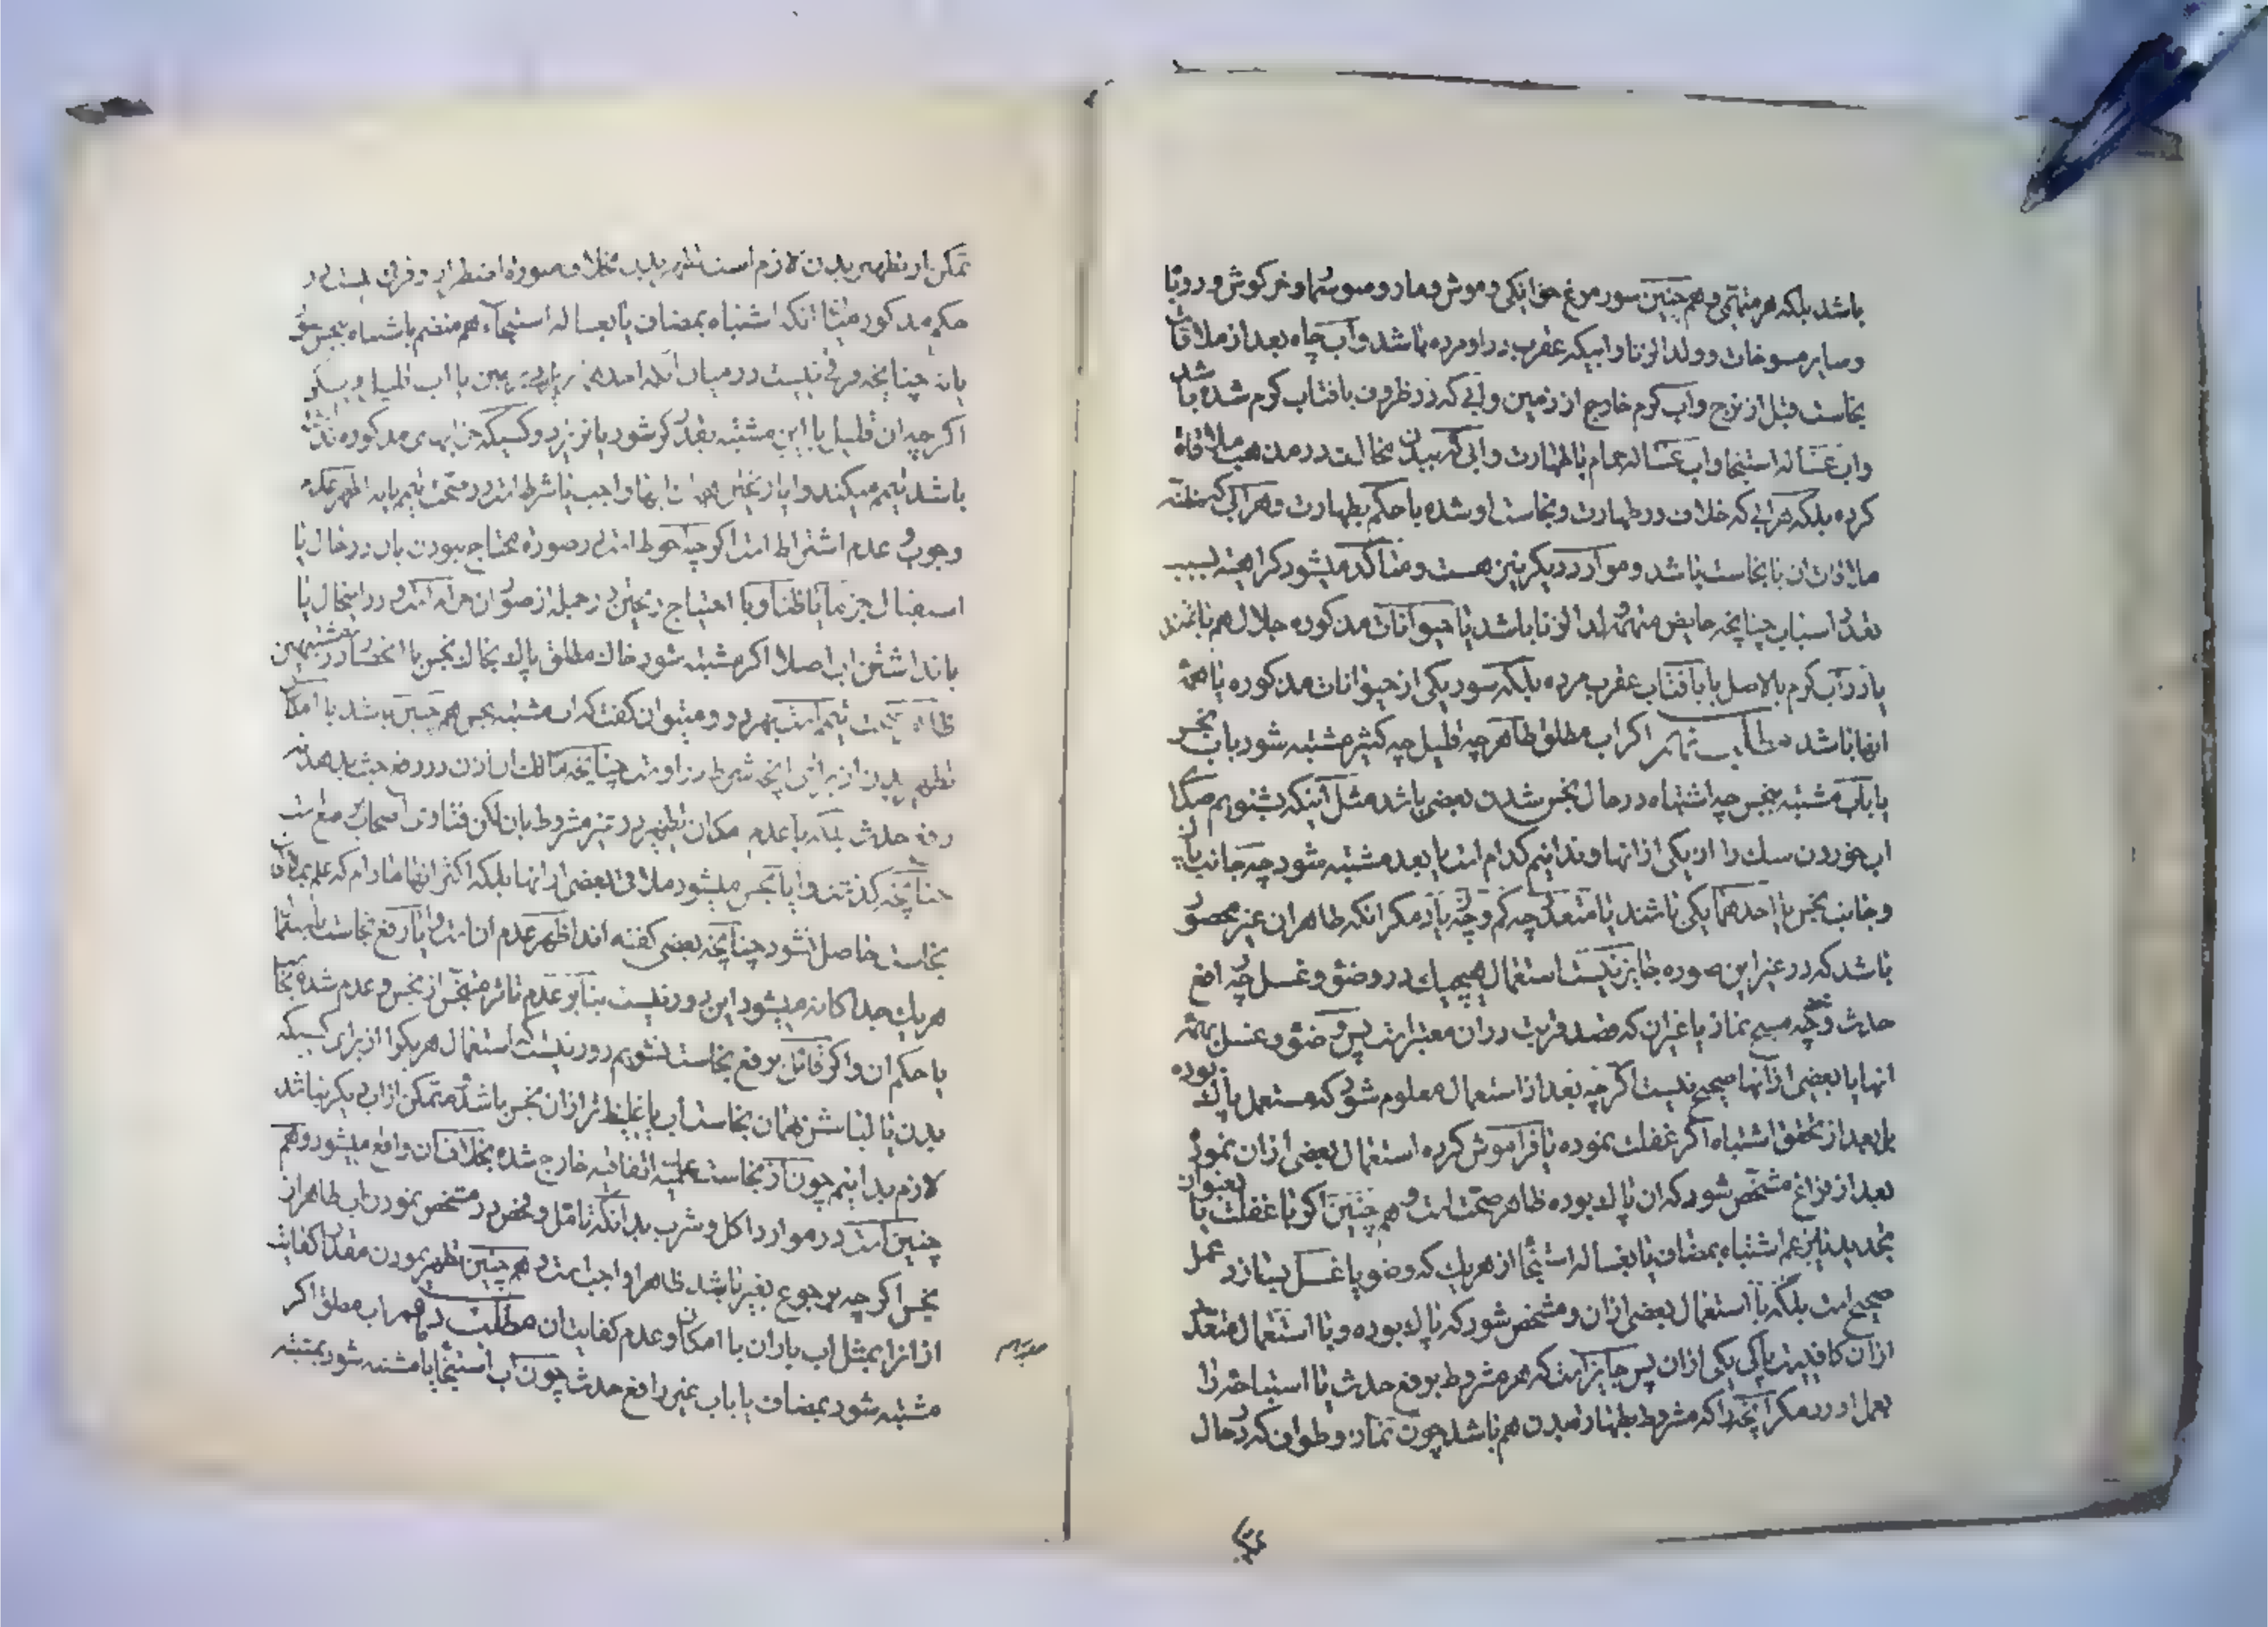 باشد بلکه هر متهمی و هم چنین سور مرغ خوانکی و موش و مار و سوسمار و خرکوش و روباه
وسایر مسوخات و ولد الزنا و ابیکه عقرب در او مرده باشد و آب چاه بعد از ملاقات
نجاست قبل از نزح و آب کرم خارج از زمین وابی که در ظروف بافتاب کرم شده باشد
واب غساله استنجا و اب غساله حمام باطهارت وابی که ببدن مخالف در مذهب ملاقاة
کرده بلکه هر ابی که خلاف در طهارت و نجاست او شده با حکم بطهارت و هر ابی که مظنه
ملاقات ان با نجاست باشد و موارد دیکر نیز هست و متاکد میشود کراهت بسبب
تعدد اسباب چنانچه حایض متهمه ولد الزنا باشد یا حیوانات مذکوره جلال هم باشند
یا در آب کرم بالاصل یا بافتاب عقرب مرده بلکه سور یکی از حیوانات مذکوره با همه
انها باشد مطلب اکر اب مطلق طاهر چه قلیل چه کثیر مشتبه شود باب نجس
یا باب مشتبه بنجس چه اشتباه در حال نجس شدن بعضی باشد مثل آینکه بشنویم صدای
اب خوردن سک را از یکی از انها و ندانیم کدام است یا بعد مشتبه شود چه جانب پاک
و جانب نجس یا احدهما یکی باشند یا متعدد چه کم و چه زیاد مکر انکه طاهر ان غیر محصور
باشد که در غیر این صوره جایز نیست استعمال هیچیک در وضو و غسل چه رافع
حدث و چه مبیح نماز یا غیر ان که قصد قربت در ان معتبر است پس وضو و غسل بهمه
انها یا بعضی از آنها صحیح نیست اکر چه بعد از استعمال معلوم شود که مستعمل پاک بوده
بل بعد از تحقق اشتباه اکر غفلت نموده یا فراموش کرده استعمال بعضی از ان نمود
بعد از فراغ مشخص شود که ان پاک بوده ظاهر صحت است و هم چنین اکر با غفلت یا بعنوان
تجدید نیز عم اشتباه بمضاف یا بغساله استنجا از هریک که وضو یا غسل بسازد عمل
صحیح است بلکه با استعمال بعضی از ان و مشخص شود که پاک بوده و یا استعمال متعدد
از ان کافیست پاکی یکی از ان پس جایز است که هر مشروط برفع حدث یا استباحه را
بعمل اورد مکر آنچه را که مشروط بطهارت بدن هم باشد چون نماز و طواف که در حال
تمکن از تطهیر بدن لازم است تطهیر بدن بخلاف صورة اضطرار و فرقی نیست در
حکم مذکور میان انکه اشتباه بمضاف یا بغساله استنجاء هم منضم باشتباه بنجس شود
یا نه چنانچه فرقی نیست در میان آنکه
اکر چه ان قلیل با این مشتبه بقدر کر شود یا نریزد و کسیکه جز ابهای مذکوره نداشته
باشد تیمم میکند و ایا ریختن ابها واجب یا شرط است در صحت تیمم یا نه اظهر عدم
وجوب و عدم اشتراط است اکر چه احوط است در صورة محتاج نبودن بان در حال یا
استقبال جزما یا ظنا و با احتیاج ریختن در جمله از صور ان حرام است و در اینحال یا
با نداشتن اب اصلا اکر مشتبه شود خاک مطلق پاک بخاک نجس با انحصار در مشتبهین
ظاهر صحت تیمم است بهر دو و میتوان کفت که اب مشتبه بنجس هم چنین باشد با امکان
تطهیر بدن از برای انچه شرط در او است چنانچه مالک
رفع حدث بلکه با عدم امکان تطهیر در غیر مشروط بان لکن فتاوی اصحاب منع است
چنانچه کذشت و ایا نجس میشود ملاقی بعضی از انها بلکه اکثر انها مادام که علم بملاقات
نجاست حاصل نشود چنانچه بعضی کفته اند اظهر عدم ان است و ایا رفع نجاست باستعمال
هریک جداکانه میشود این دور نیست بنا بر عدم تاثر متنجس از نجس و عدم شدة نجاست
یا حکم ان و اکر قائل برفع نجاست نشویم دور نیست که استعمال هریک را از برای کسیکه
بدن یا لباسش بهمان نجاست اب یا غلیظتر از ان نجس باشد و متمکن از اب دیکر نباشد
لازم بدانیم چون از نجاست عینیه اتفاقیه خارج شده بخلاف ان واقع میشود و هم
چنین است در موارد اکل و شرب بدانکه تامل و فحص در مشخص نمودن اب طاهر از
نجس اکر چه برجوع بغیر باشد ظاهرا واجب است و هم چنین تطهیر نمودن مقدار کفایت
از انرا بمثل اب باران با امکان و عدم کفایت ان مطلب دهم اب مطلق اکر
مشتبه شود بمضاف یا باب غیر رافع حدث چون آب استنجا یا مشتبه شود بمشتبه